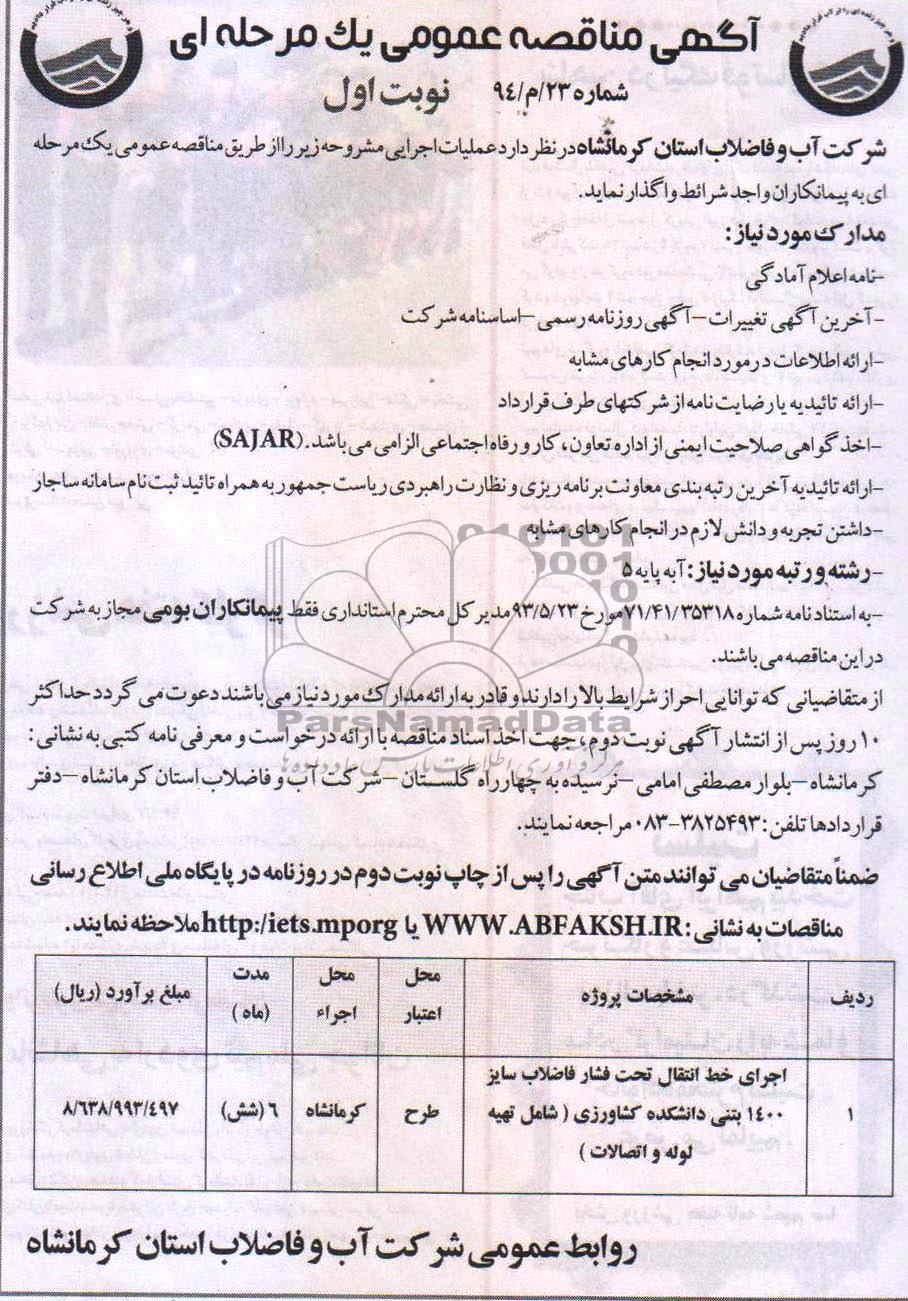 آگهی مناقصه عمومی یک مرحله ای
شماره ۲۳/م/۹۴ نوبت اول
شرکت آب و فاضلاب استان کرمانشاه در نظر دارد عملیات اجرایی مشروحه زیر را از طریق مناقصه عمومی یک مرحله
ای به پیمانکاران واجد شرائط واگذار نماید.
مدارک مورد نیاز:
-نامه اعلام آمادگی
-آخرین آگهی تغییرات-آگهی روزنامه رسمی-اساسنامه شرکت
-ارائه اطلاعات در مورد انجام کارهای مشابه
-ارائه تائیدیه یا رضایت نامه از شرکتهای طرف قرارداد
-اخذ گواهی صلاحیت ایمنی از اداره تعاون، کار و رفاه اجتماعی الزامی می باشد.(SAJAR)
-ارائه تائیدیه آخرین رتبه بندی معاونت برنامه ریزی و نظارت راهبردی ریاست جمهور به همراه تائید ثبت نام سامانه ساجار
-داشتن تجربه و دانش لازم در انجام کارهای مشابه
-رشته و رتبه مورد نیاز: آبه پایه ۵
-به استناد نامه شماره ۷۱/۴۱/۳۵۳۱۸ مورخ ۹۳/۵/۲۳ مدیر کل محترم استانداری فقط پیمانکاران بومی مجاز به شرکت
در این مناقصه می باشند.
از متقاضیانی که توانایی احراز شرایط بالا را دارند و قادر به ارائه مدارک مورد نیاز می باشند دعوت می گردد حداکثر
ParsNamadData
۱۰ روز پس از انتشار آگهی نوبت دوم، جهت اخذ اسناد مناقصه با ارائه درخواست و معرفی نامه کتبی به نشانی:
کرمانشاه-بلوار مصطفی امامی-نرسیده به چهارراه گلستان-شرکت آب و فاضلاب استان کرمانشاه-دفتر
قراردادها تلفن: ۳۸۲۵۴۹۳-۰۸۳ مراجعه نمایند.
ضمناً متقاضیان می توانند متن آگهی را پس از چاپ نوبت دوم در روزنامه در پایگاه ملی اطلاع رسانی
مناقصات به نشانی: WWW.ABFAKSH.IR یا http:/iets.mporg ملاحظه نمایند.
ردیف مشخصات پروژه محل اعتبار محل اجراء مدت (ماه) مبلغ برآورد (ریال)
۱ اجرای خط انتقال تحت فشار فاضلاب سایز ۱۴۰۰ بتنی دانشکده کشاورزی (شامل تهیه لوله و اتصالات) طرح کرمانشاه ۶(شش) ۸/۶۳۸/۹۹۳/۴۹۷
روابط عمومی شرکت آب و فاضلاب استان کرمانشاه